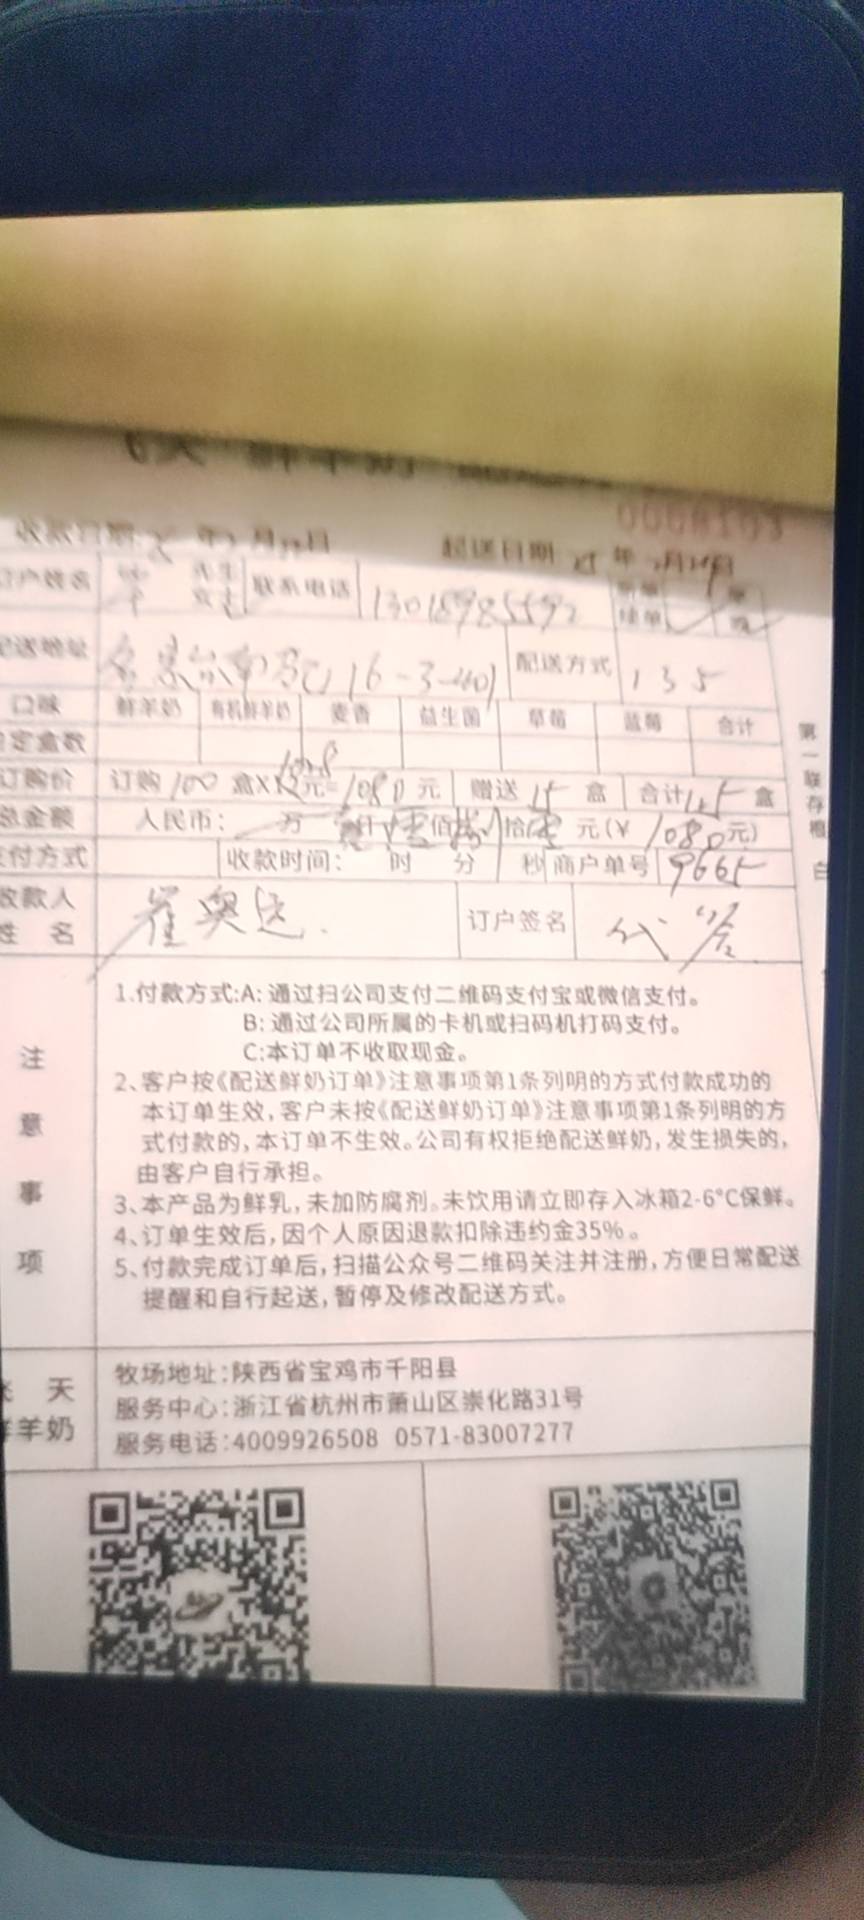 收款日期 年 月 日 起送日期 25 年 2月 日
订户姓名 先生 女士 联系电话 13018985592
配送地址 16-3-401 配送方式 135
口味 鲜羊奶 有机鲜羊奶 麦香 益生菌 草莓 蓝莓 合计
定盒数
订购价 订购 100 盒X 10.8 元= 1080 元 赠送 15 盒 合计 盒
总金额 人民币: 万 仟 佰 拾 元(¥ 1080元)
付方式 收款时间: 时 分 秒 商户单号 9665
收款人 崔奥运 订户签名 代签
姓 名
第一联存根 白
注意事项
1.付款方式:A: 通过扫公司支付二维码支付宝或微信支付。
B: 通过公司所属的卡机或扫码机打码支付。
C:本订单不收取现金。
2、客户按《配送鲜奶订单》注意事项第1条列明的方式付款成功的
本订单生效,客户未按《配送鲜奶订单》注意事项第1条列明的方
式付款的,本订单不生效。公司有权拒绝配送鲜奶,发生损失的,
由客户自行承担。
3、本产品为鲜乳,未加防腐剂。未饮用请立即存入冰箱2-6°C保鲜。
4、订单生效后,因个人原因退款扣除违约金35%。
5、付款完成订单后,扫描公众号二维码关注并注册,方便日常配送
提醒和自行起送,暂停及修改配送方式。
天
羊奶
牧场地址:陕西省宝鸡市千阳县
服务中心:浙江省杭州市萧山区崇化路31号
服务电话:4009926508 0571-83007277